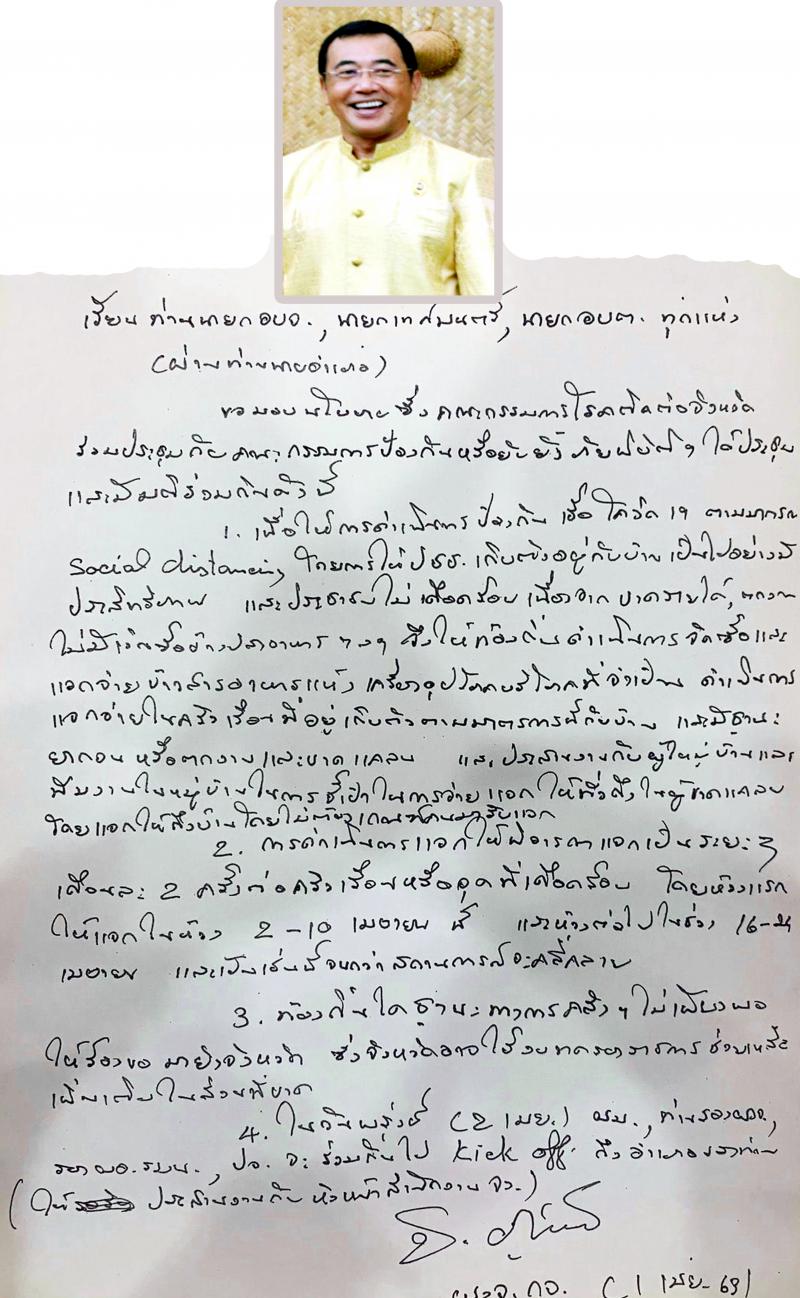 เรียน ท่านนายก อบจ., นายกเทศมนตรี, นายก อบต. ทุกแห่ง
(ผ่านท่านนายอำเภอ)
ขอมอบนโยบาย ซึ่ง คณะกรรมการโรคติดต่อจังหวัด
ร่วมประชุมกับ คณะกรรมการป้องกันหรือยับยั้งภัยพิบัติฯ ได้ประชุม
และมีมติร่วมกันดังนี้
1. เพื่อให้การดำเนินการป้องกัน เชื้อโควิด 19 ตามมาตรการ
Social distancing โดยการให้ ปชช. เก็บตัวอยู่กับบ้าน เป็นไปอย่างมี
ประสิทธิภาพ และประชาชนไม่เดือดร้อน เนื่องจาก ขาดรายได้, ตกงาน
ไม่มีเงินซื้อข้าวปลาอาหาร ฯลฯ จึงให้ท้องถิ่นดำเนินการ จัดซื้อและ
แจกจ่ายข้าวสารอาหารแห้ง เครื่องอุปโภคบริโภคที่จำเป็น ดำเนินการ
แจกจ่ายในครัวเรือนที่อยู่เก็บตัวตามมาตรการนี้กับบ้าน และมีฐานะ
ยากจน หรือตกงานและขาดแคลน และประสานงานกับผู้ใหญ่บ้านและ
ทีมงานในหมู่บ้านในการชี้เป้าในการจ่ายแจกให้ทั่วถึงในผู้ขาดแคลน
โดยแจกให้ถึงบ้านโดยไม่ต้องเกณฑ์คนมารับแจก
2. การดำเนินการแจกให้พิจารณาแจกเป็นระยะๆ
เดือนละ 2 ครั้งต่อครัวเรือนหรือจุดที่เดือดร้อน โดยห้วงแรก
ให้แจกในห้วง 2-10 เมษายน นี้ และห้วงต่อไปในช่วง 16-24
เมษายน และเป็นเช่นนี้จนกว่าสถานการณ์จะคลี่คลาย
3. ท้องถิ่นใด ฐานะทางการคลังฯ ไม่เพียงพอ
ให้ร้องขอ มายังจังหวัด ซึ่งจังหวัดอาจใช้งบทดรองราชการช่วยเหลือ
เพิ่มเติมในส่วนที่ขาด
4. ในวันพรุ่งนี้ (2 เมย.) ผม, ท่านรองผวจ.,
รอง ผอ.รมน., ปจ. จะร่วมกันไป Kick off ถึงอำเภอของท่าน
(ให้ ประสานงานกับ หัวหน้าสำนักงาน จว.)